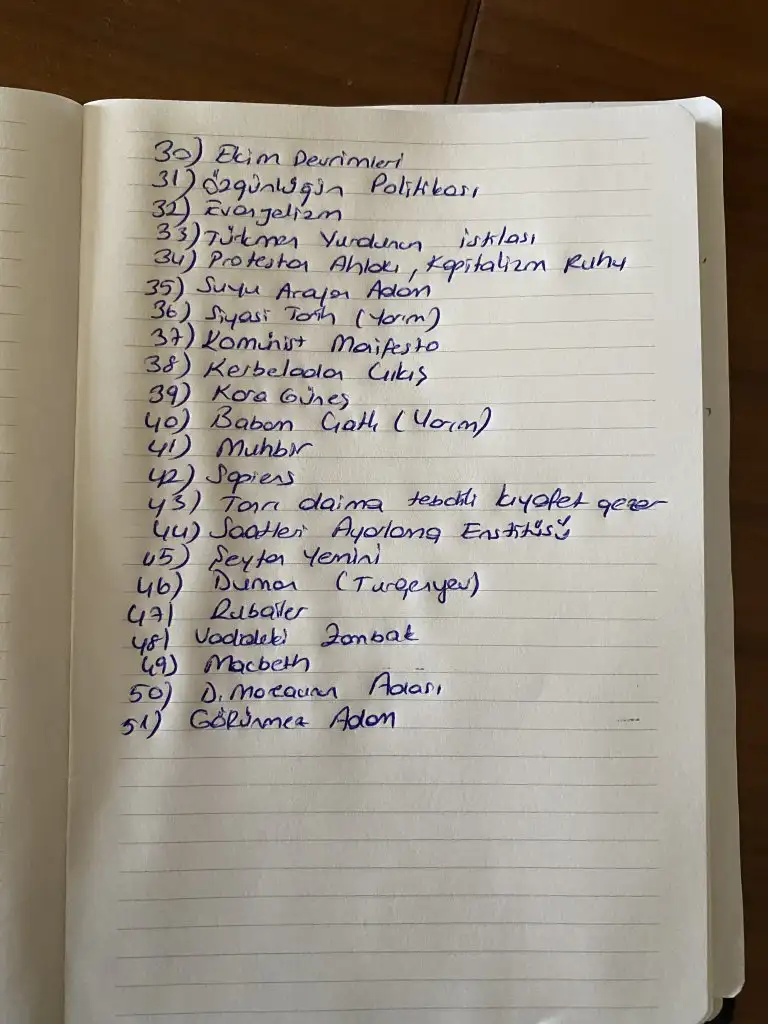 30) Ekim Devrimleri
31) Özgünlüğün Politikası
32) Evanjelizm
33) Türkmen Yurdunun istilası
34) Protestan Ahlakı, Kapitalizm Ruhu
35) Suyu Arayan Adam
36) Siyasi Tarih (Yarım)
37) Komünist Manifesto
38) Kerbeladan Çıkış
39) Kara Güneş
40) Babam Çatlı (Yarım)
41) Muhbir
42) Sapiens
43) Tanrı daima tebdili kıyafet gezer
44) Saatleri Ayarlama Enstitüsü
45) Şeytan Yemini
46) Duman (Turgenyev)
47) Rubailer
48) Vadideki Zambak
49) Macbeth
50) D. Moreaunun Adası
51) Görünmez Adam